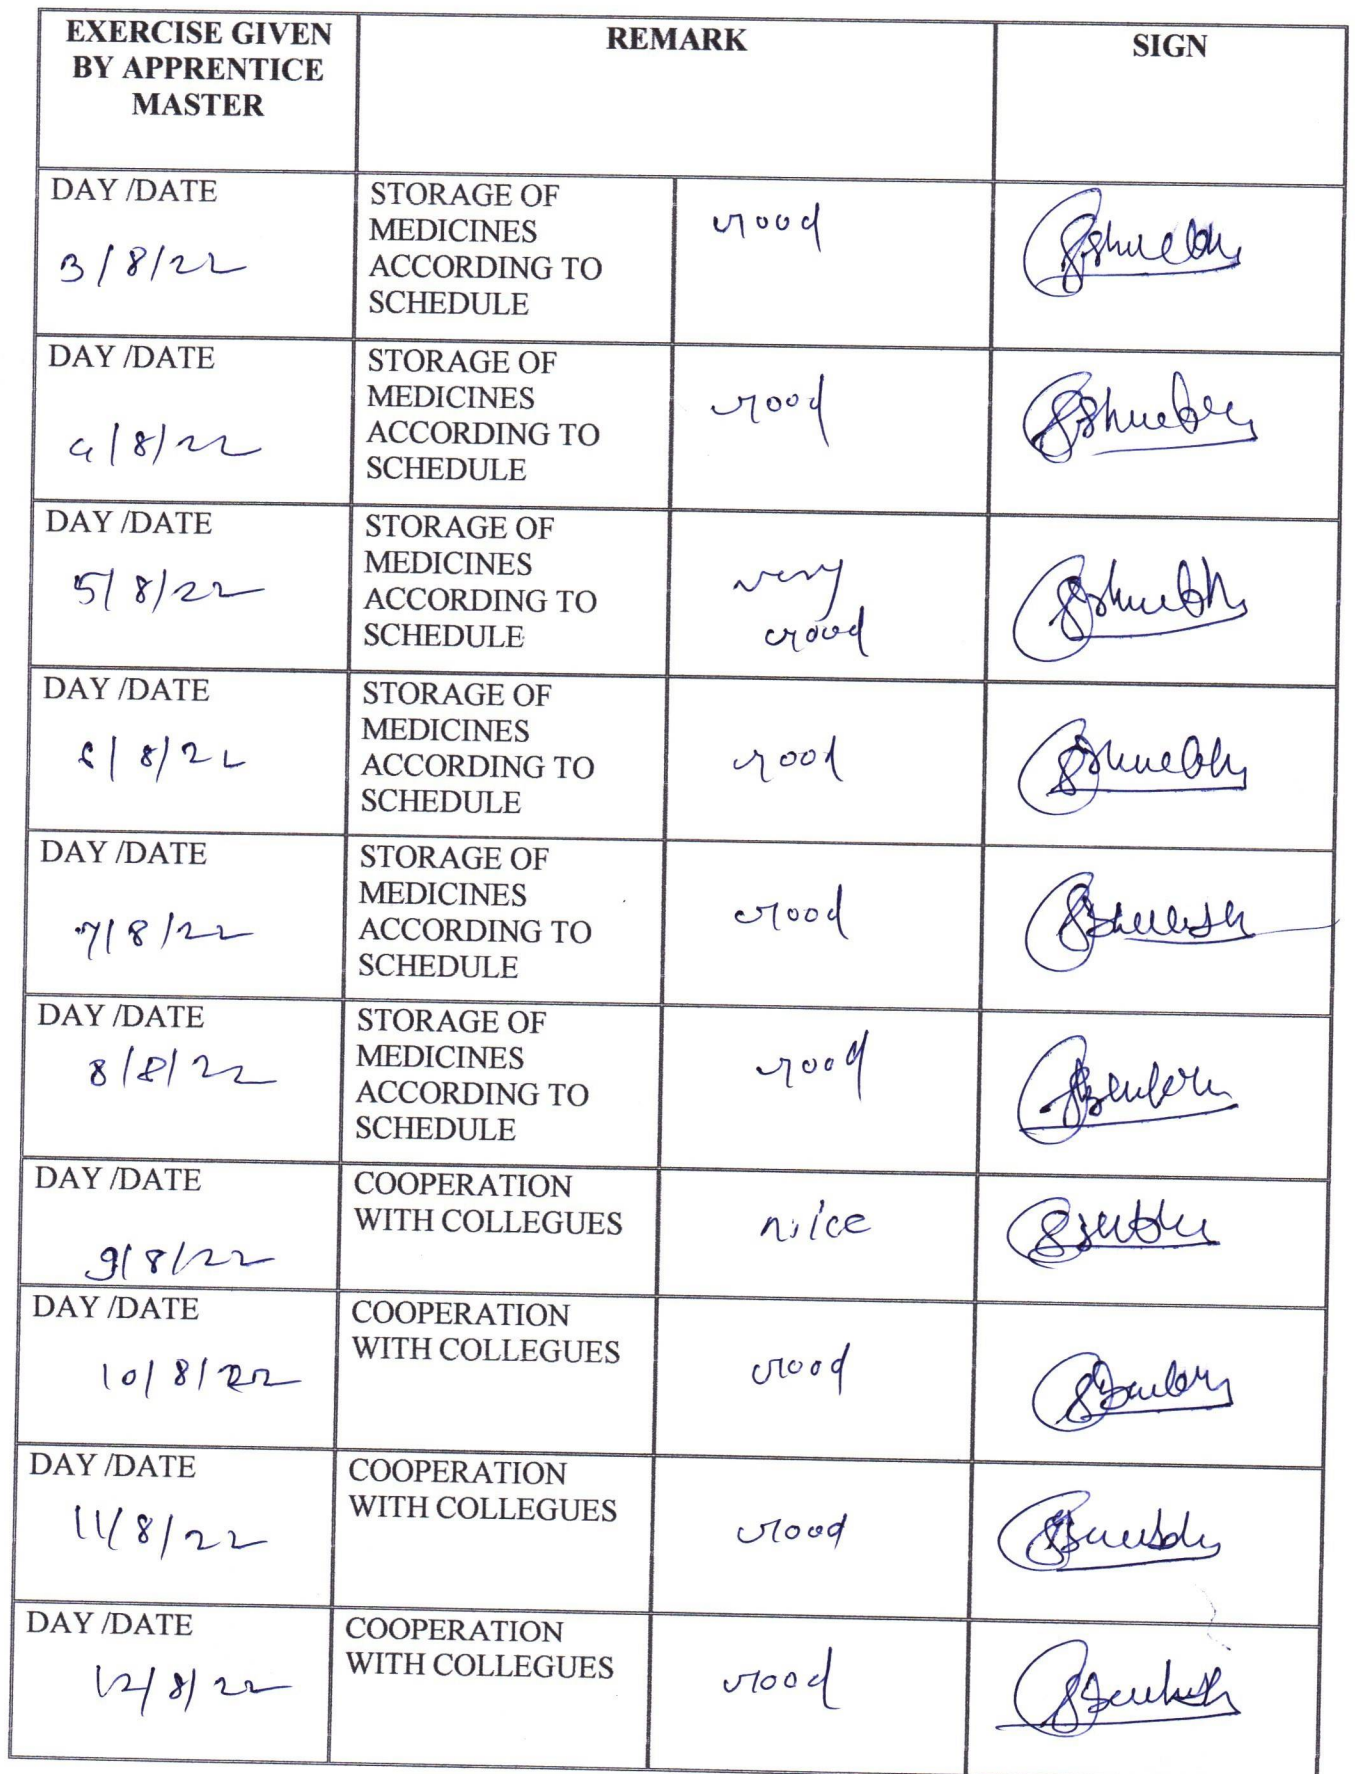 EXERCISE GIVEN
BY APPRENTICE
MASTER
REMARK
SIGN
DAY /DATE
3/8/22
STORAGE OF
MEDICINES
ACCORDING TO
SCHEDULE
Good
DAY /DATE
4/8/22
STORAGE OF
MEDICINES
ACCORDING TO
SCHEDULE
Good
DAY /DATE
5/8/22
STORAGE OF
MEDICINES
ACCORDING TO
SCHEDULE
very
Good
DAY /DATE
6/8/22
STORAGE OF
MEDICINES
ACCORDING TO
SCHEDULE
Good
DAY /DATE
7/8/22
STORAGE OF
MEDICINES
ACCORDING TO
SCHEDULE
Good
DAY /DATE
8/8/22
STORAGE OF
MEDICINES
ACCORDING TO
SCHEDULE
Good
DAY /DATE
9/8/22
COOPERATION
WITH COLLEGUES
nice
DAY /DATE
10/8/22
COOPERATION
WITH COLLEGUES
Good
DAY /DATE
11/8/22
COOPERATION
WITH COLLEGUES
Good
DAY /DATE
12/8/22
COOPERATION
WITH COLLEGUES
Good